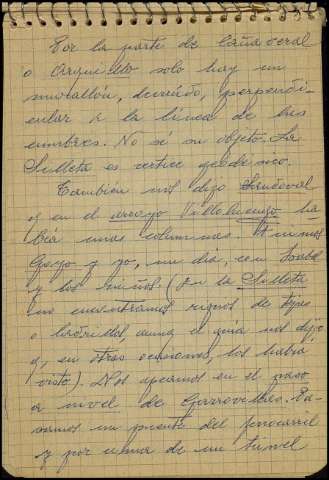 Por la parte de Cañaveral
o Arquillo solo hay un
murallón, derruido, perpendi-
cular a la línea de las
cumbres. No sé su objeto. La
Silleta es vertice geodesico.
También nos dijo Sandoval
q en el arroyo Villoluengo ha-
bía unas columnas. Fuimos
Goyo y yo, un día, con Isabel
y los niños. (En la Silleta
no encontramos signos de tejas
o ladrillos, aunq el guía nos dijo
q, en otras ocasiones, los había
visto). Nos apeamos en el paso
a nivel de Garrovillas. Pa-
samos un puente del ferrocarril
y por encima de un tunel